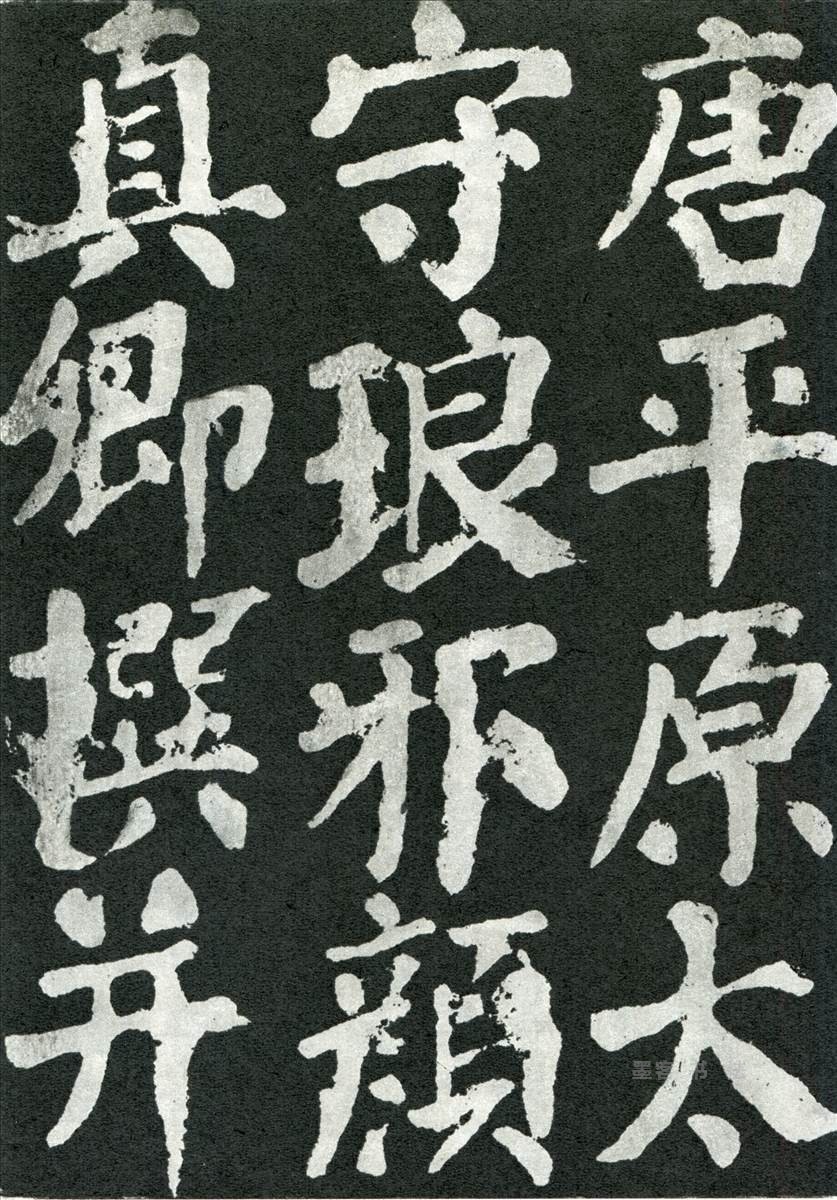 唐平原太
守琅邪顏
真卿撰并